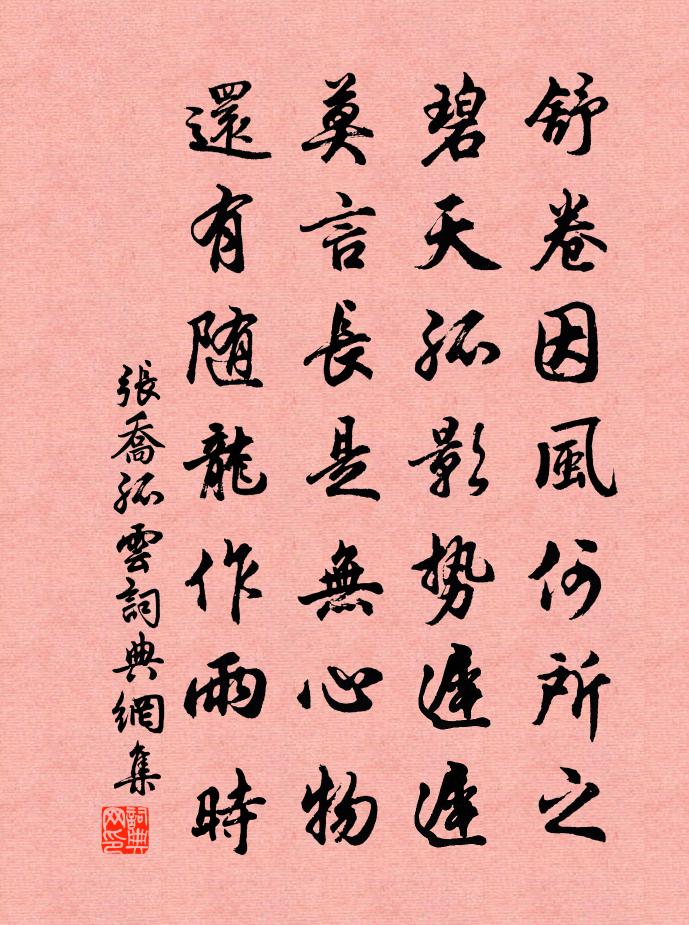 舒卷因風何所之
碧天孤影势遲遲
莫言長是無心物
還有随龍作雨時
張喬孤雲詞典網集
詞典网印